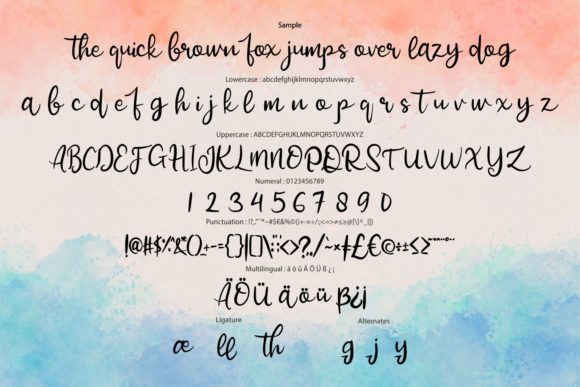 Sample
the quick brown fox jumps over lazy dog
Lowercase : abcdefghijklmnopqrstuvwxyz
a b c d e f g h i j k l m n o p q r s t u v w x y z
Uppercase : ABCDEFGHIJKLMNOPQRSTUVWXYZ
ABCDEFGHIJKLMNOPQRSTUVWXYZ
Numeral : 0123456789
1 2 3 4 5 6 7 8 9 0
Punctuation :
Multilingual : ä ö ü Ä Ö Ü ß ¿ ¡
ÄÖÜ äöü ß¿¡
Ligature Alternates
æ ll th g j y